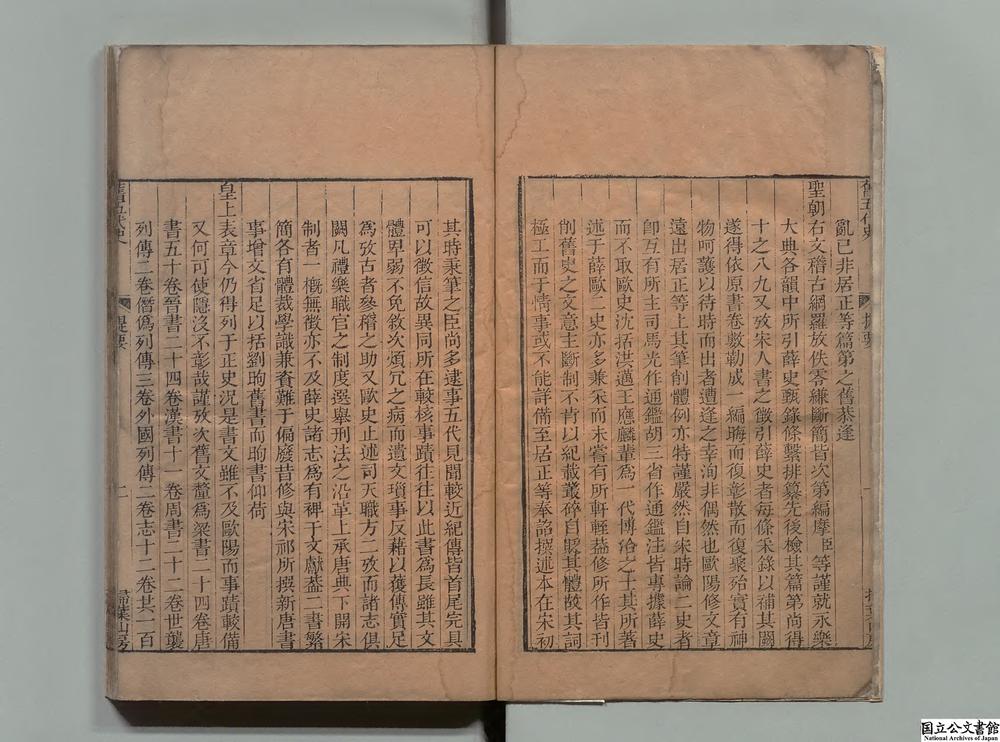 亂已非居正等篇第之舊恭逢
聖朝右文稽古網羅放佚零縑斷簡皆次第編摩臣等謹就永樂
大典各韻中所引薛史甄錄條繫排纂先後檢其篇第尚得
十之八九又攷宋人書之徵引薛史者每條采錄以補其闕
遂得依原書卷數勒成一編晦而復彰散而復聚殆實有神
物呵護以待時而出者遭逢之幸洵非偶然也歐陽修文章
遠出居正等上其筆削體例亦特謹嚴然自宋時論二史者
卽互有所主司馬光作通鑑胡三省作通鑑注皆專據薛史
而不取歐史沈括洪邁王應麟輩爲一代博洽之士其所著
述于薛歐二史亦多兼采而未嘗有所軒輊葢修所作皆刊
削舊史之文意主斷制不肯以紀載叢碎自貶其體故其詞
極工而于情事或不能詳備至居正等奉詔撰述本在宋初
其時秉筆之臣尚多逮事五代見聞較近紀傳皆首尾完具
可以徵信故異同所在較核事蹟往往以此書爲長雖其文
體卑弱不免敘次煩冗之病而遺文瑣事反藉以獲傳實足
爲攷古者參稽之助又歐史止述司天職方二攷而諸志俱
闕凡禮樂職官之制度選舉刑法之沿革上承唐典下開宋
制者一槪無徵亦不及薛史諸志爲有裨于文獻葢二書繁
簡各有體裁學識兼資難于偏廢昔修與宋祁所撰新唐書
事增文省足以括劉昫舊書而昫書仰荷
皇上表章今仍得列于正史況是書文雖不及歐陽而事蹟較備
又何可使隱沒不彰哉謹攷次舊文釐爲梁書二十四卷唐
書五十卷晉書二十四卷漢書十一卷周書二十二卷世襲
列傳二卷僭僞列傳三卷外國列傳二卷志十二卷共一百
舊五代史
提要
二
掃葉山房
国立公文書館
National Archives of Japan